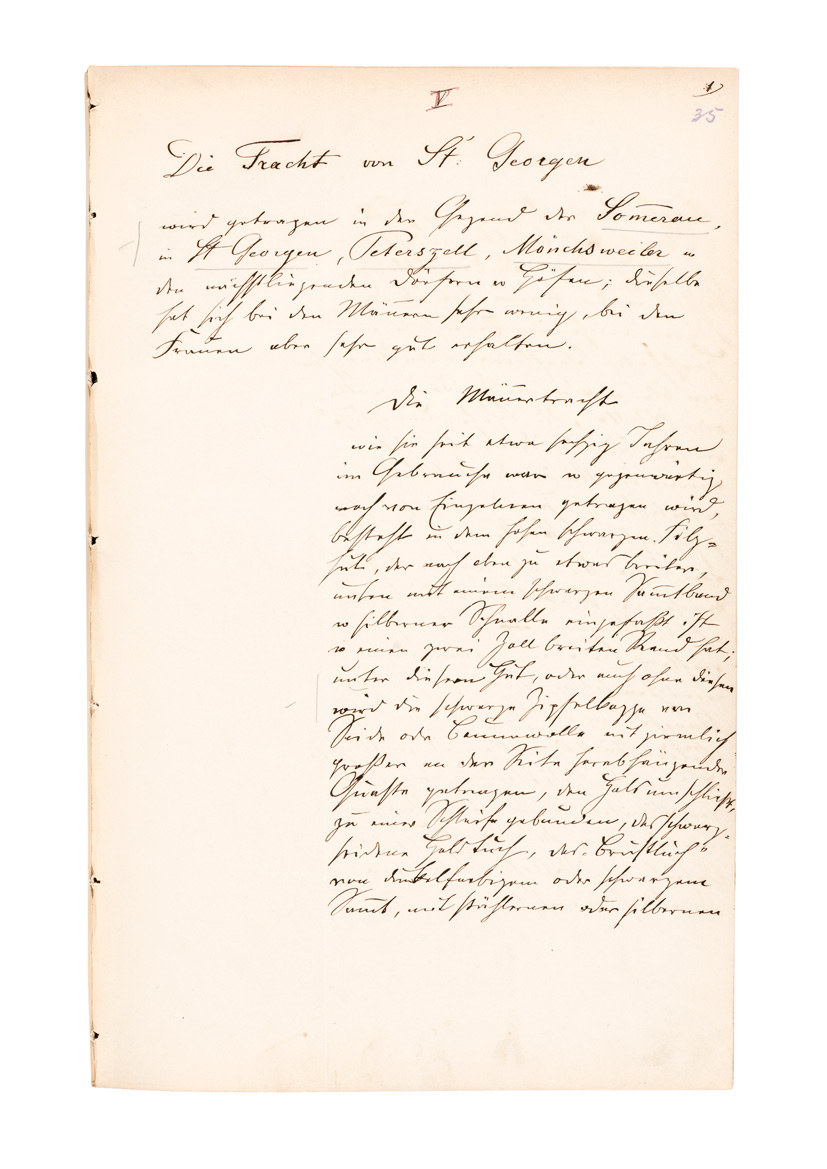 V
1)
35
Die Tracht von St. Georgen
wird getragen in der Gegend der Som̅erau,
in St Georgen, Peterszell, Mönchsweiler u
den nächstliegenden Dörfern u Höfen; dieselbe
hat sich bei den Män̅ern sehr wenig, bei den
Frauen aber sehr gut erhalten.
Die Män̅ertracht
wie sie seit etwa sechzig Jahren
im Gebrauche war u gegenwärtig
noch von Einzelnen getragen wird,
besteht in dem hohen schwarzen Filz=
hute, der nach oben zu etwas breiter,
unten mit einem schwarzen Sam̅tband
u silberner Schnalle eingefaßt ist
u einen zwei Zoll breiten Rand hat;
unter diesem Hut, oder auch ohne diesen
wird die schwarze Zipfelkappe von
Seide oder Baumwolle mit ziemlich
großer an der Seite herabhängender
Quaste getragen, den Hals umschließt,
zu einer Schleife gebunden, das schwarz=
seidene Halstuch, das Brusttuch
von dunkelfarbigem oder schwarzem
Sam̅t, mit stählernen oder silbernen